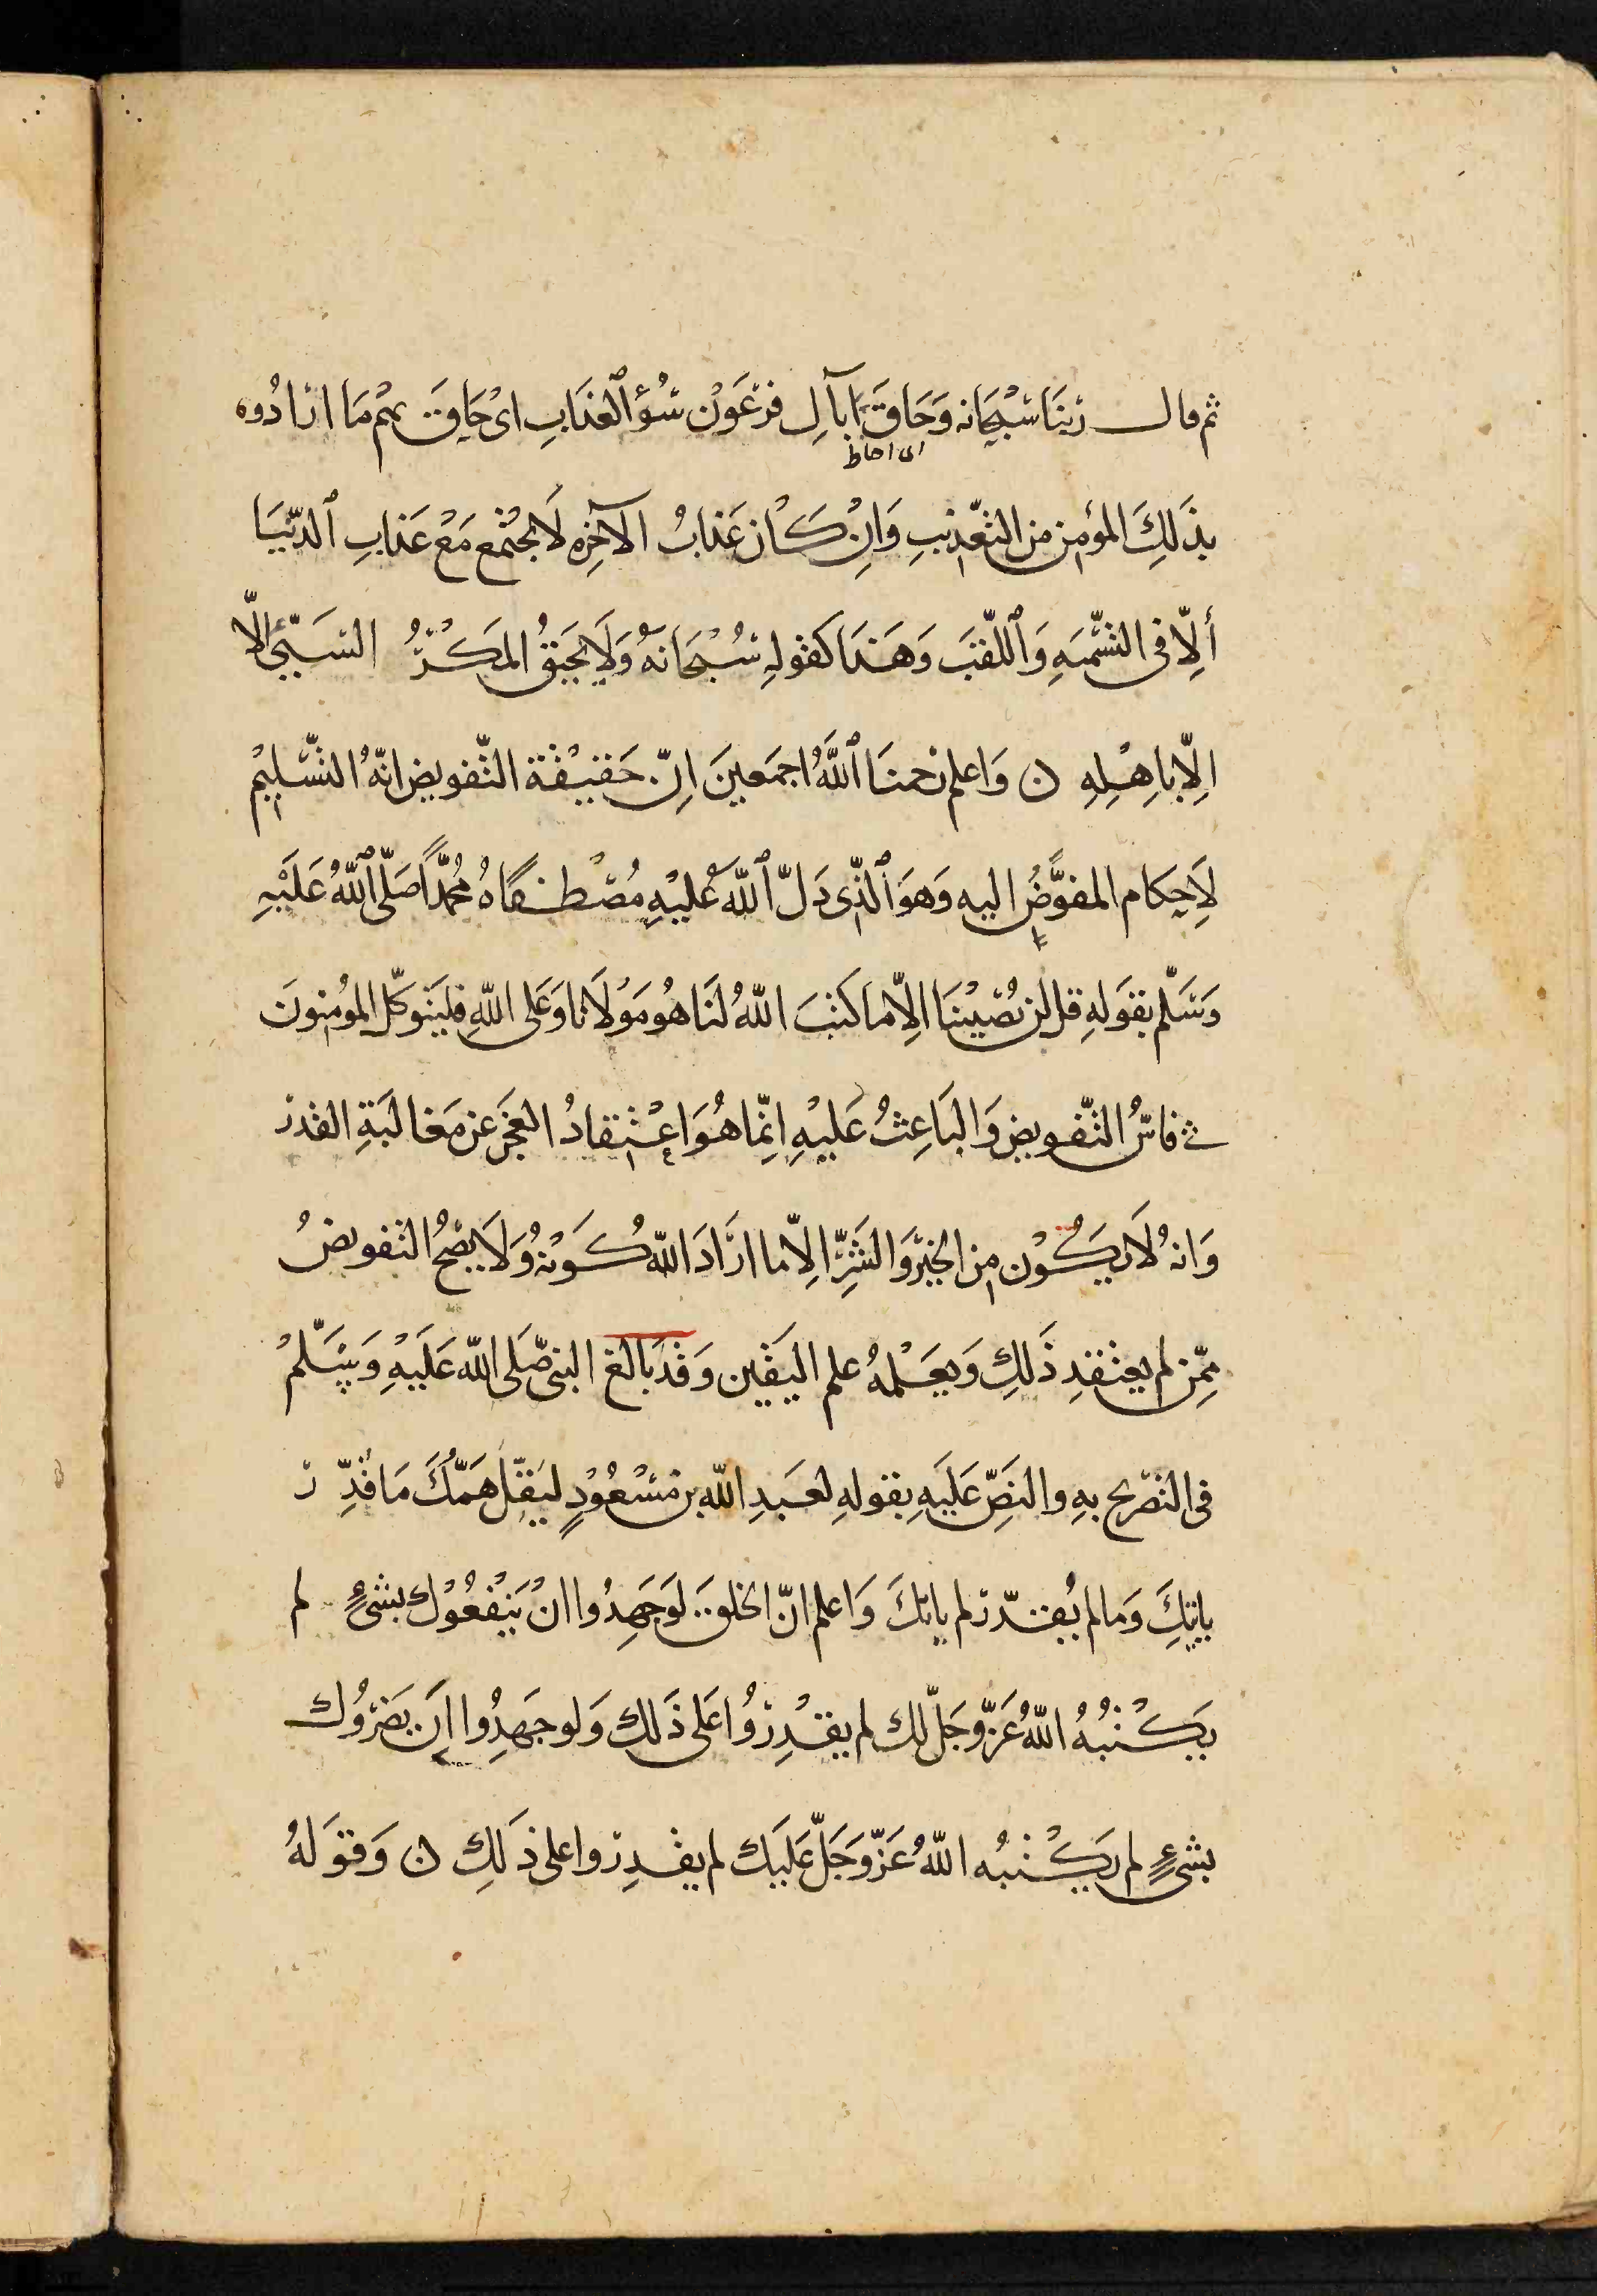 ثم قال ربنا سبحانه وَحَاقَ بآلِ فرعَوْن سُوءُ العَذَابِ ايْ حَاقَ بهم مَا ارَادُوه
اى احاط
بذَلِكَ المؤمن من التعْذيبِ وَانْ كَان عَذابُ الآخِرِه لَا يجتمع مَعْ عَذابِ الدنْيَا
ألِّا في التسْميَهِ وَاللَّقبَ وَهَذَا كقولِهِ سُبْحَانَهُ وَلَا يَحيقُ المَكْرُ السَيّئ الّا
الِّا باهِلِهِ ن وَاعلم رَحمنَا اللَّهُ اجمَعينَ انّ حَقيقْة التّفويض انّهُ التّسْليمْ
لِاَحكام المفوَّضُ اليه وَهوَ الذّى دَلّ اللّهَ عُليْهِ مُصْطفَاهُ مُحمَّداً صَلّى اللّهُ عَلَيْهِ
وَسَلّم بقوَلهِ قل لن يُصيْبنَا الِاّ ما كَتبَ اللّهُ لنَا هُو مَوْلَانا وَعَلى اللّهِ فليَتوكّل المؤمنونَ
فاسُّ التّفويض وَالبَاعِثُ عَليْهِ انِّما هُوَ اعْتقادُ العَجَز عن مَغالَبَةِ القدر
وَانهُ لَا يَكُوْن من الخيْر وَالشَرِّ الِاّ ما ارَادَ اللّه كَوْنهُ وَلَا يَصحُ التفويضُ
مِمّن لم يعتقدِ ذَلِكِ وَيعَلمْهُ علم اليَقين وَقد بَالغ النبى صَّلَى اللّه عَلَيْهِ وَسَلّمْ
فى التصريح بهِ والنَصِّ عَليَهِ بقولهِ لعَبدِ اللّه بن مَسْعُوْدٍ ليَقلّ هَمّكَ مَا قُدِّر
ياتيكَ وَمالم يُقدّر لم ياتكَ وَاعلم انّ الخلقَ لوَ جَهِدُوا انْ يَنفعُوْك بشىءٍ لم
يَكْتبُهُ اللّهُ عَزّ وجَلّ لك لم يقدِرُوا عَلى ذَلك وَلو جَهِدُوا انَ يَضرُوك
بشىءٍ لم يَكْتبُه اللّهُ عَزّ وَجَلّ عَليَك لم يقدِروا على ذَلِكِ ن وَقوَلهُ